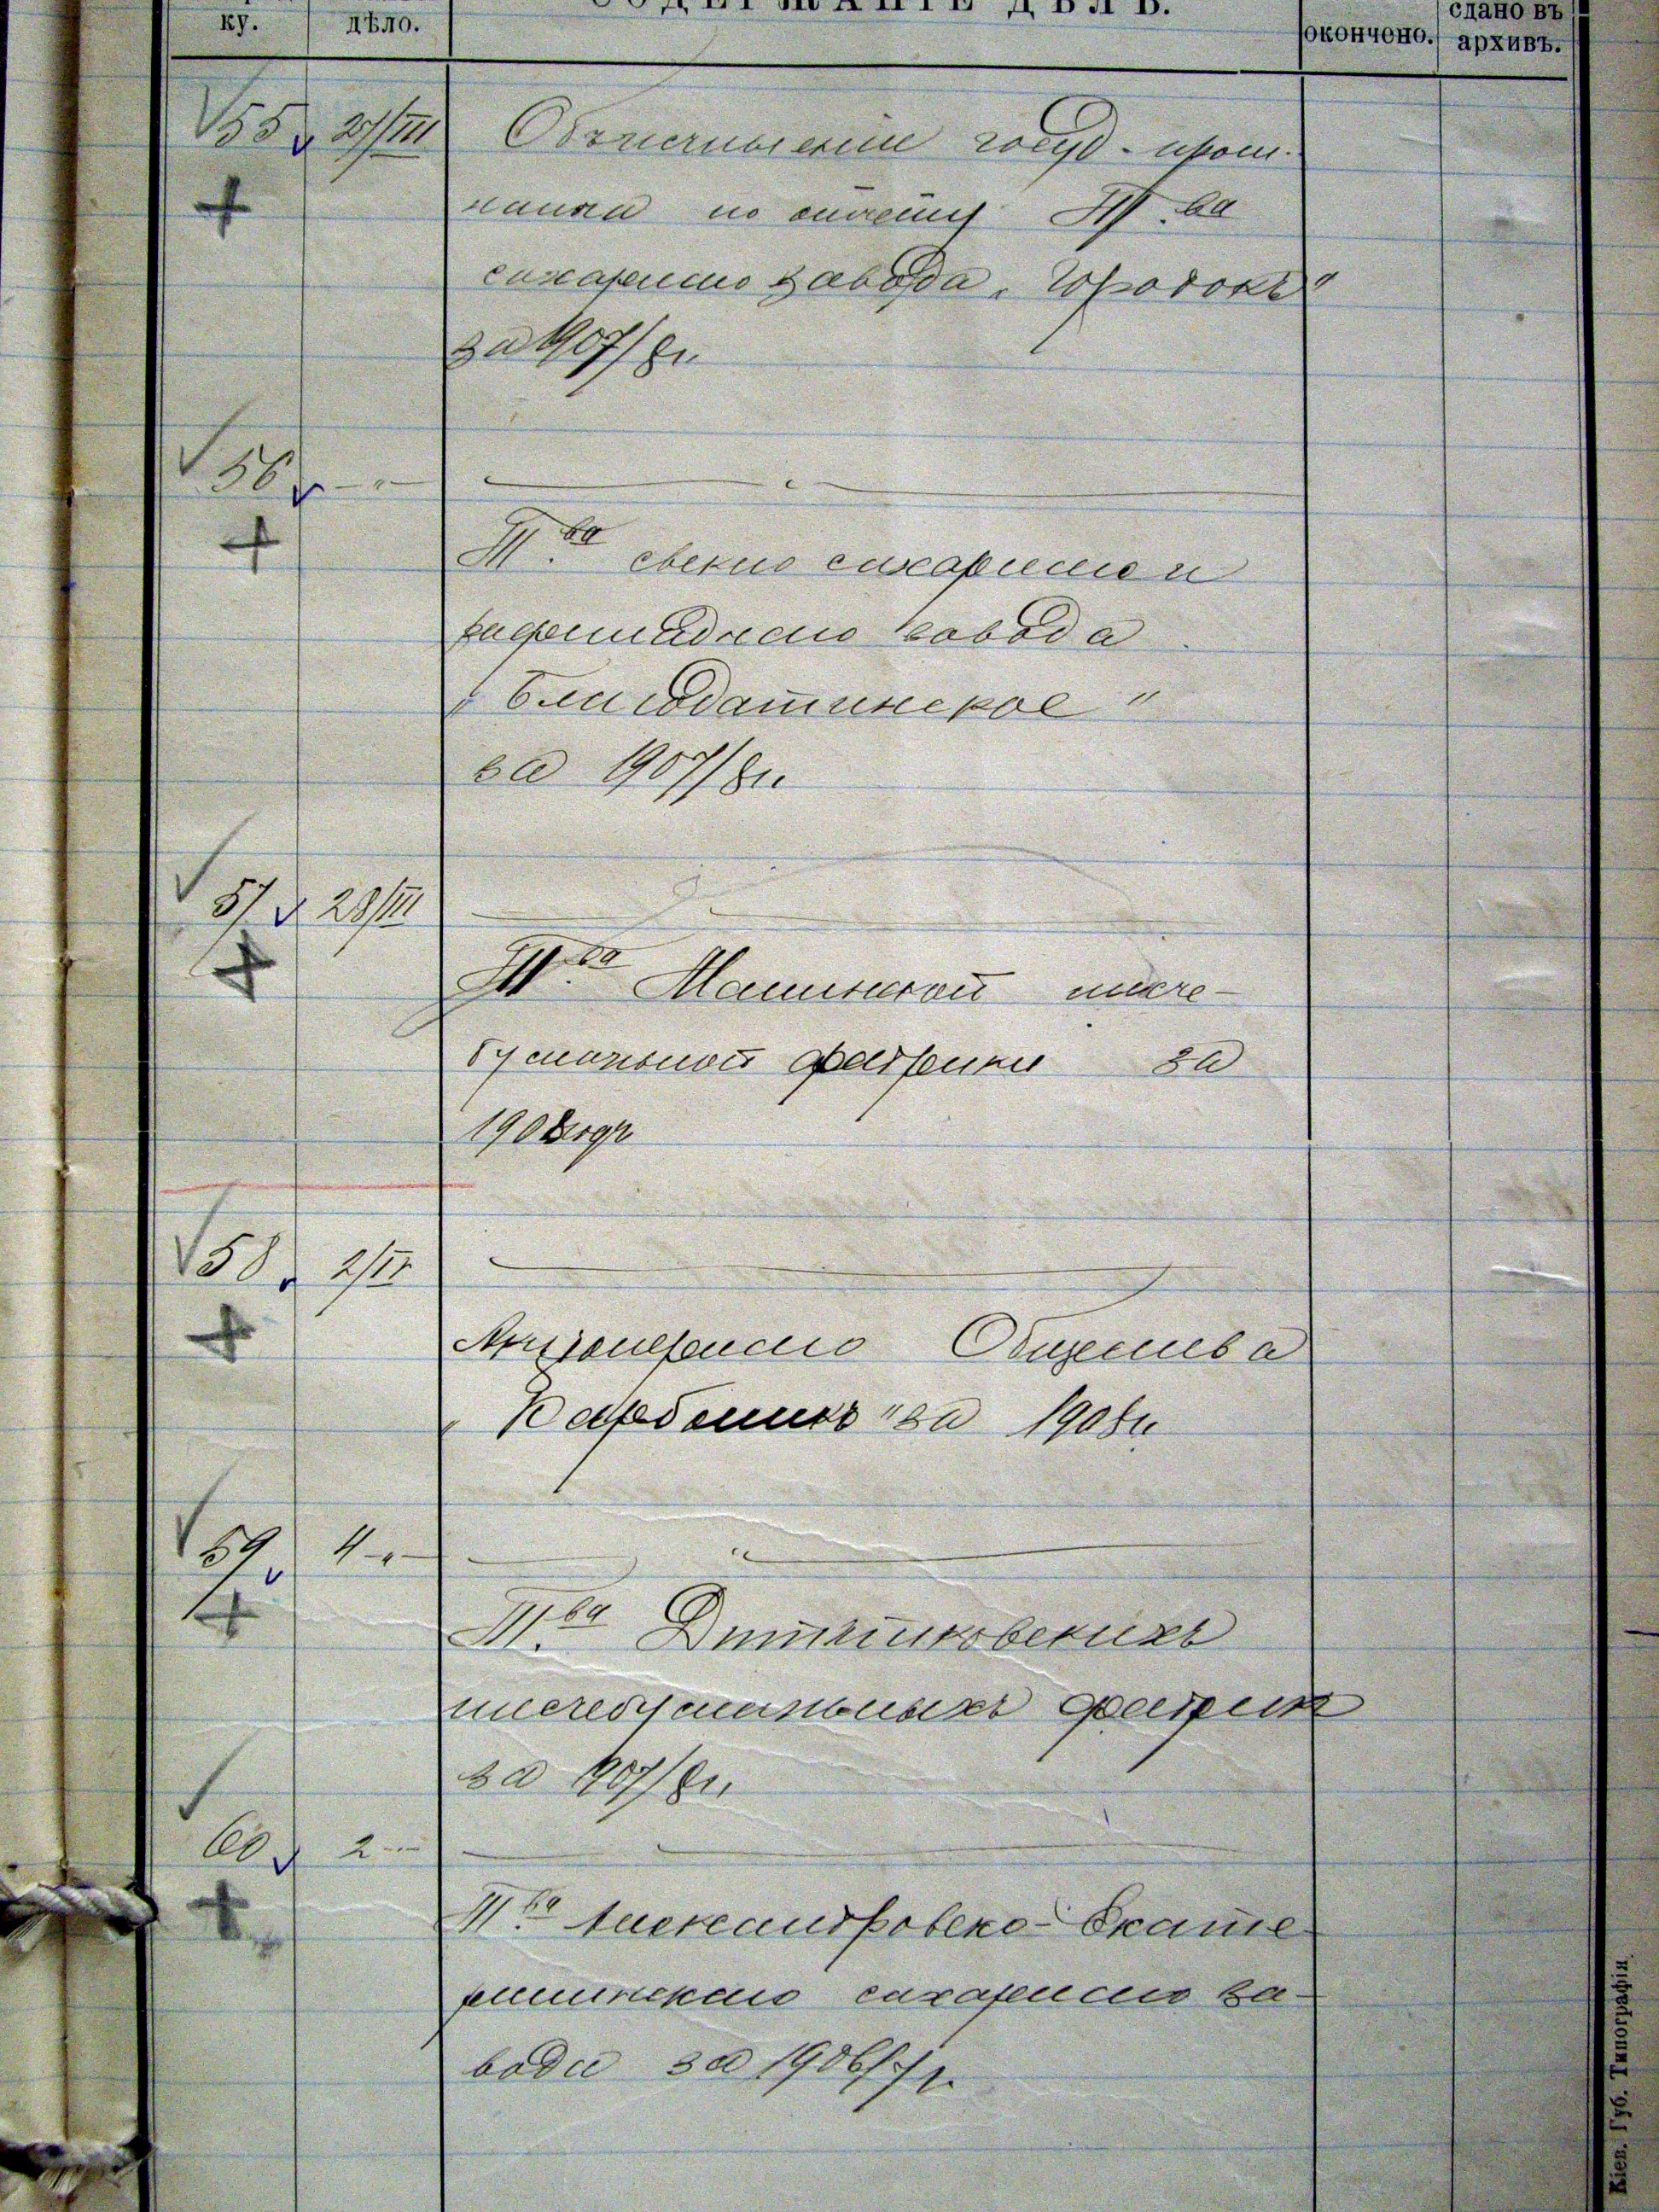 ку. дѣло. СОДЕРЖАНІЕ ДѢЛЪ. окончено. сдано въ архивъ.
55 27/III Обложеніи госуд. пром.
налога по отчету Т-ва
сахарнаго завода „Городокъ"
за 1907/8 г.
56 - " - — " —
Т-ва свекло сахарнаго и
рафинаднаго завода
„Благодатинское"
за 1907/8 г.
57 28/III
Т-ва Малинской писче-
бумажной фабрики за
1908 годъ
58 2/IV
Акціонернаго Общества
„Карбоникъ" за 1908 г.
59 4 - " - — " —
Т-ва Дитятковскихъ
писчебумажныхъ фабрикъ
за 1907/8 г.
60 2 - " -
Т-ва Александровско-Екате-
рининскаго сахарнаго за-
вода за 1906/7 г.
Кіев. Губ. Типографія